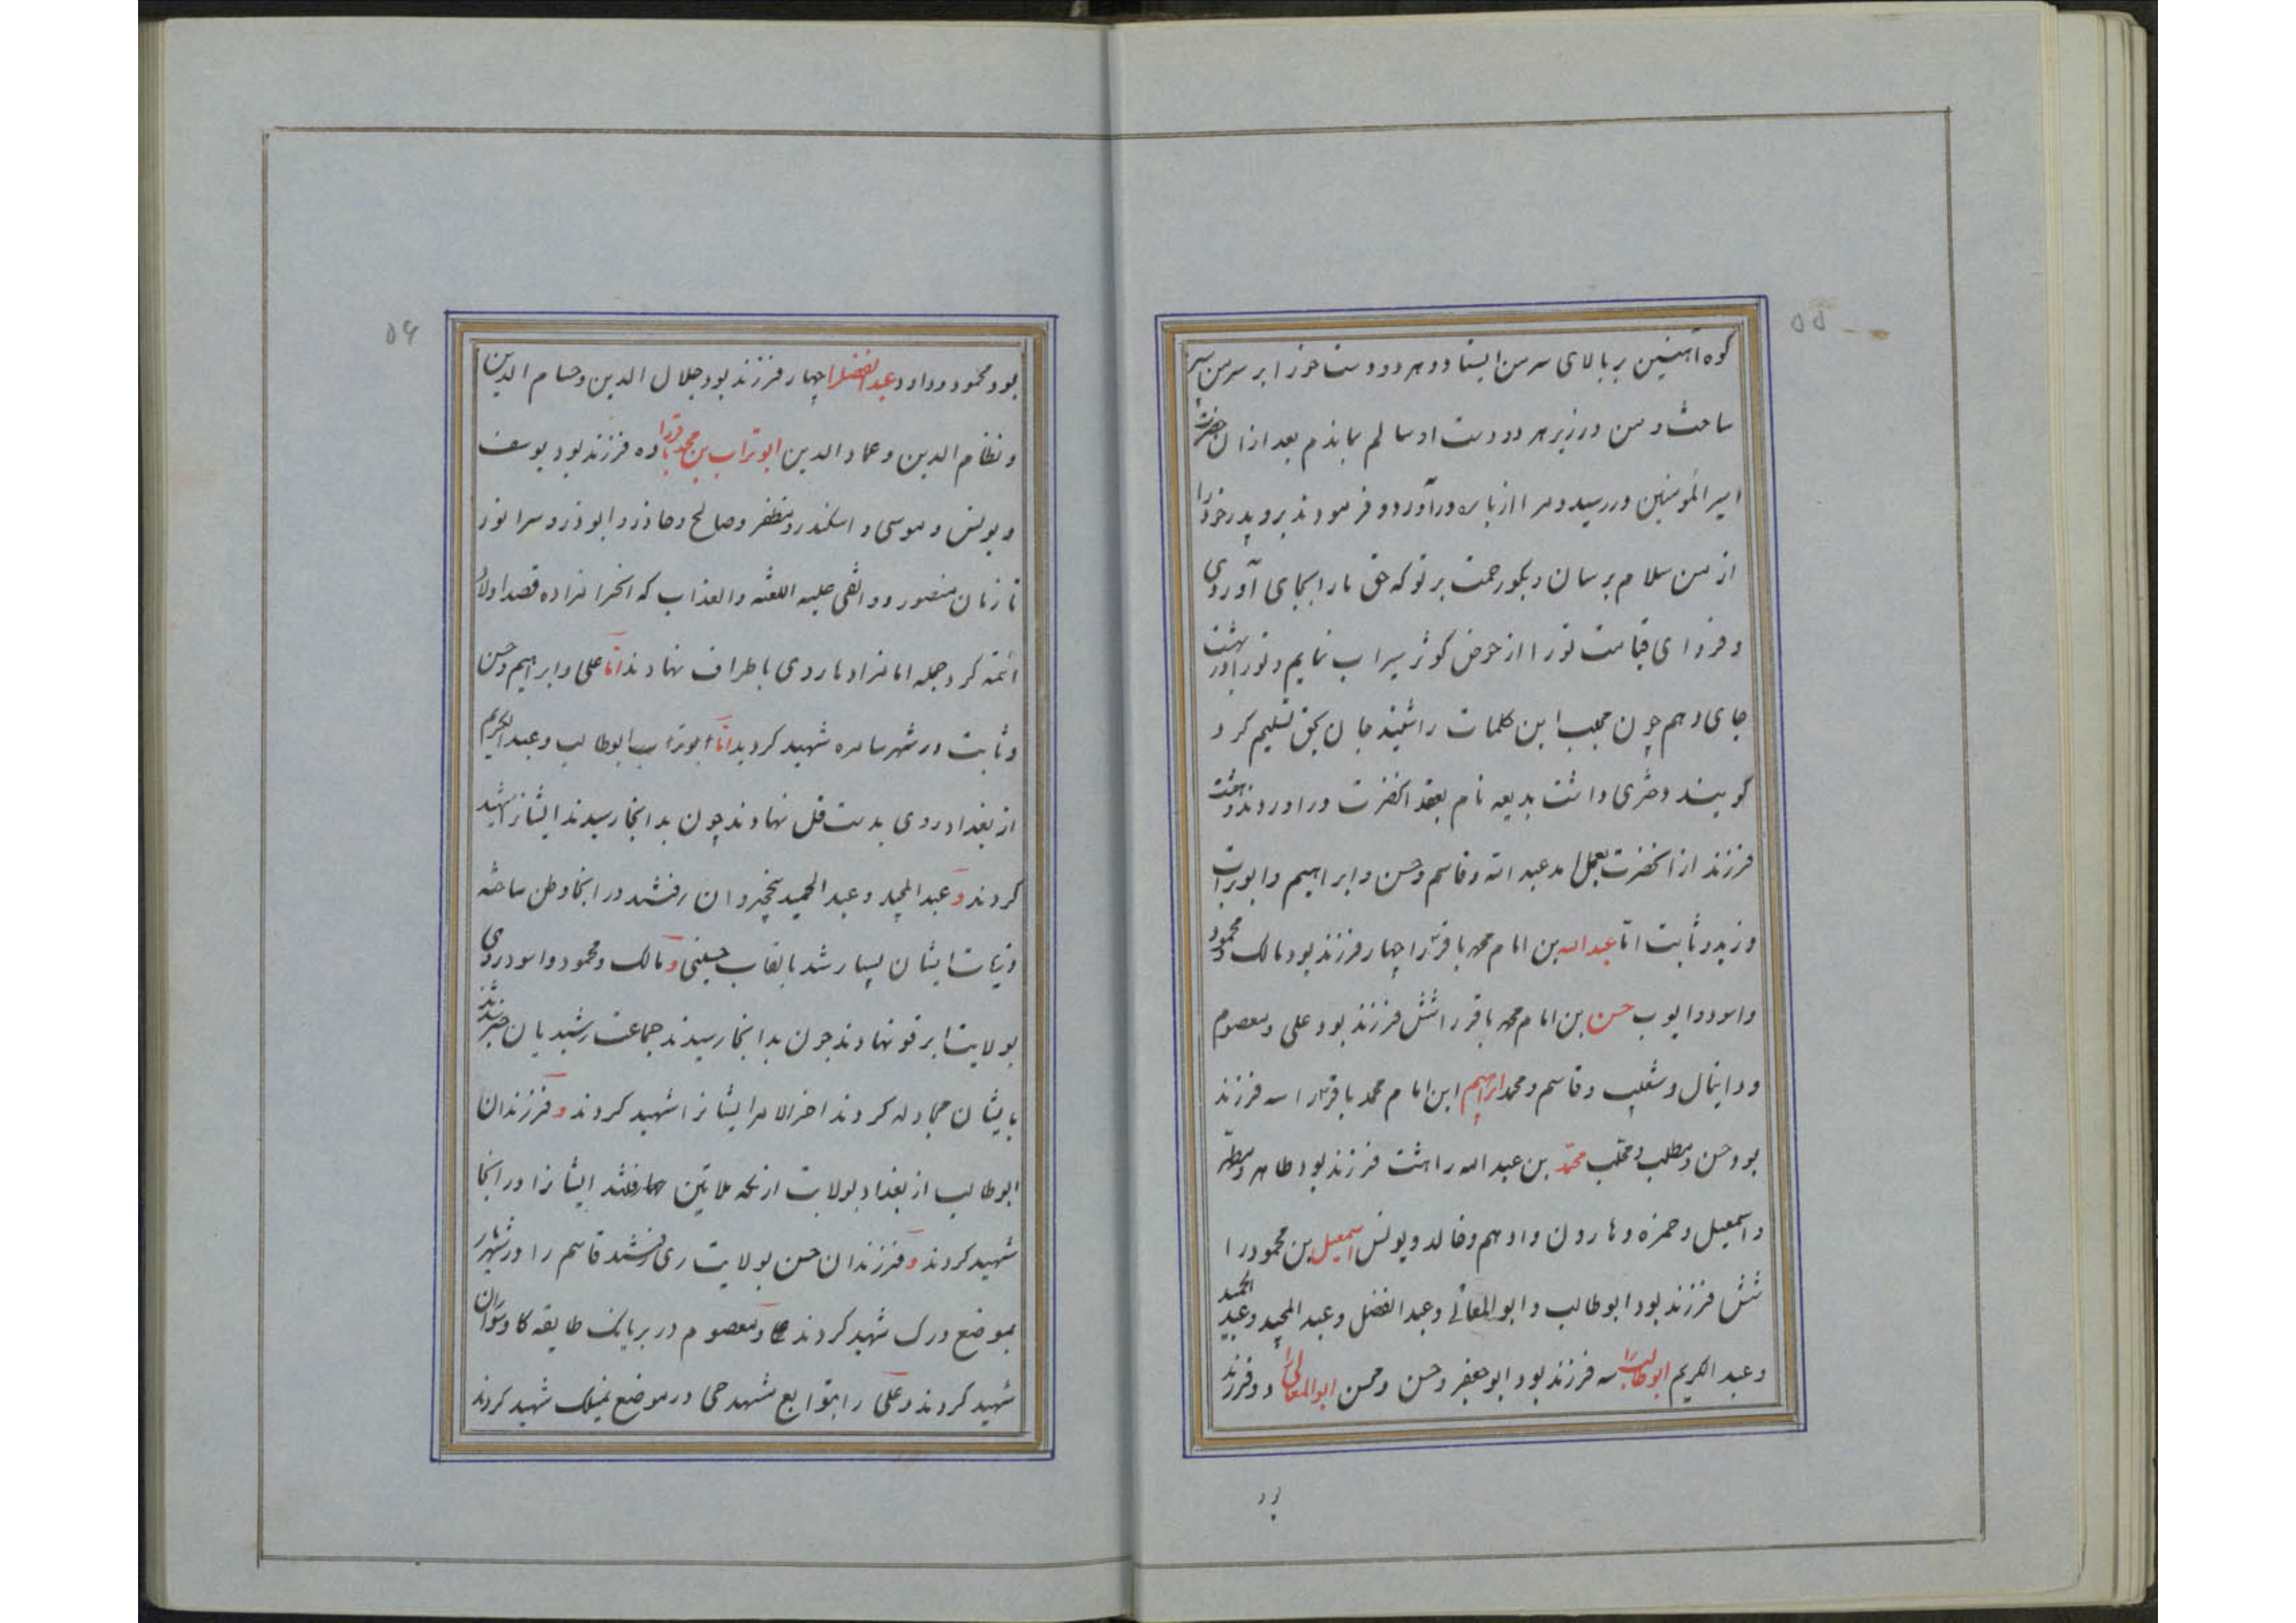 ۵۵
کوه آهنین بر بالای سر من ایستاد و هر دو دست خود را بر سر من سپر
ساخت و من در زیر هر دو دست او سالم بماندم بعد از آن حضرت
امیر المؤمنین در رسید و مرا از باره در آورد و فرمودند برو پدر خود را
از من سلام برسان و بکو رحمت بر تو که حق ما را بجای آوردی
و فردای قیامت تو را از حوض کوثر سیراب نمایم و تو را در بهشت
جای دهم چون محب این کلمات را شنید جان بحق تسلیم کرد
کویند دختری داشت بدیعه نام بعقد انحضرت در اوردند و هفت
فرزند از انحضرت بعمل امد عبد الله و قاسم و حسن و ابراهیم و ابوتراب
و زید و ثابت اما عبد الله بن امام محمد باقر را چهار فرزند بود مالک و محمود
و اسود و ایوب حسن بن امام محمد باقر را شش فرزند بود علی و معصوم
و دانیال و شعیب و قاسم و محمد ابراهیم ابن امام محمد باقر را سه فرزند
بود حسن و مطلب و محمد بن عبد الله را هشت فرزند بود طاهر و مطهر
و اسمعیل و حمزه و هارون و ادهم و خالد و یونس اسمعیل بن محمود را
شش فرزند بود ابوطالب و ابوالمعالی و عبد الفضل و عبد المجید و عبد الحمید
و عبد الکریم ابوطالب را سه فرزند بود ابوجعفر و حسن و محسن ابوالمعالی را دو فرزند
بود
۵۶
بود محمود و داود و عبد الفضل را چهار فرزند بود جلال الدین و حسام الدین
و نظام الدین و عماد الدین ابوتراب بن محمد باقر را ده فرزند بود یوسف
و یونس و موسی و اسکندر و مظفر و صالح و ابوذر و
تا زمان منصور دوانقی علیه اللعنه والعذاب که انحرامزاده قصد اولاد
ائمه کرد جمله امامزادها روی باطراف نهادند اما علی و ابراهیم و حسن
و ثابت در شهر سامره شهید کردید اما ابوتراب ابوطالب و عبد الکریم
از بغداد روی بدست قل نهادند چون بدانجا رسیدند ایشانرا شهید
کردند و عبد المجید و عبد الحمید بنخجیروان رفتند در انجا وطن ساخته
و ذریات ایشان بسیار شد بالقاب حسینی و مالک و محمود و اسود روی
بولایت ابرقو نهادند چون بدانجا رسیدند جماعت رشیدیان خبر شدند
بایشان مجادله کردند اخر الامر ایشانرا شهید کردند و فرزندان
ابوطالب از بغداد بولایت رفتند ایشانرا در انجا
شهید کردند و فرزندان حسن بولایت ری رفتند قاسم را در شهریار
بموضع درک شهید کردند و معصوم در بریانک طایفه کاوسواران
شهید کردند و علی را بتوابع مشهد در موضع شهید کردند